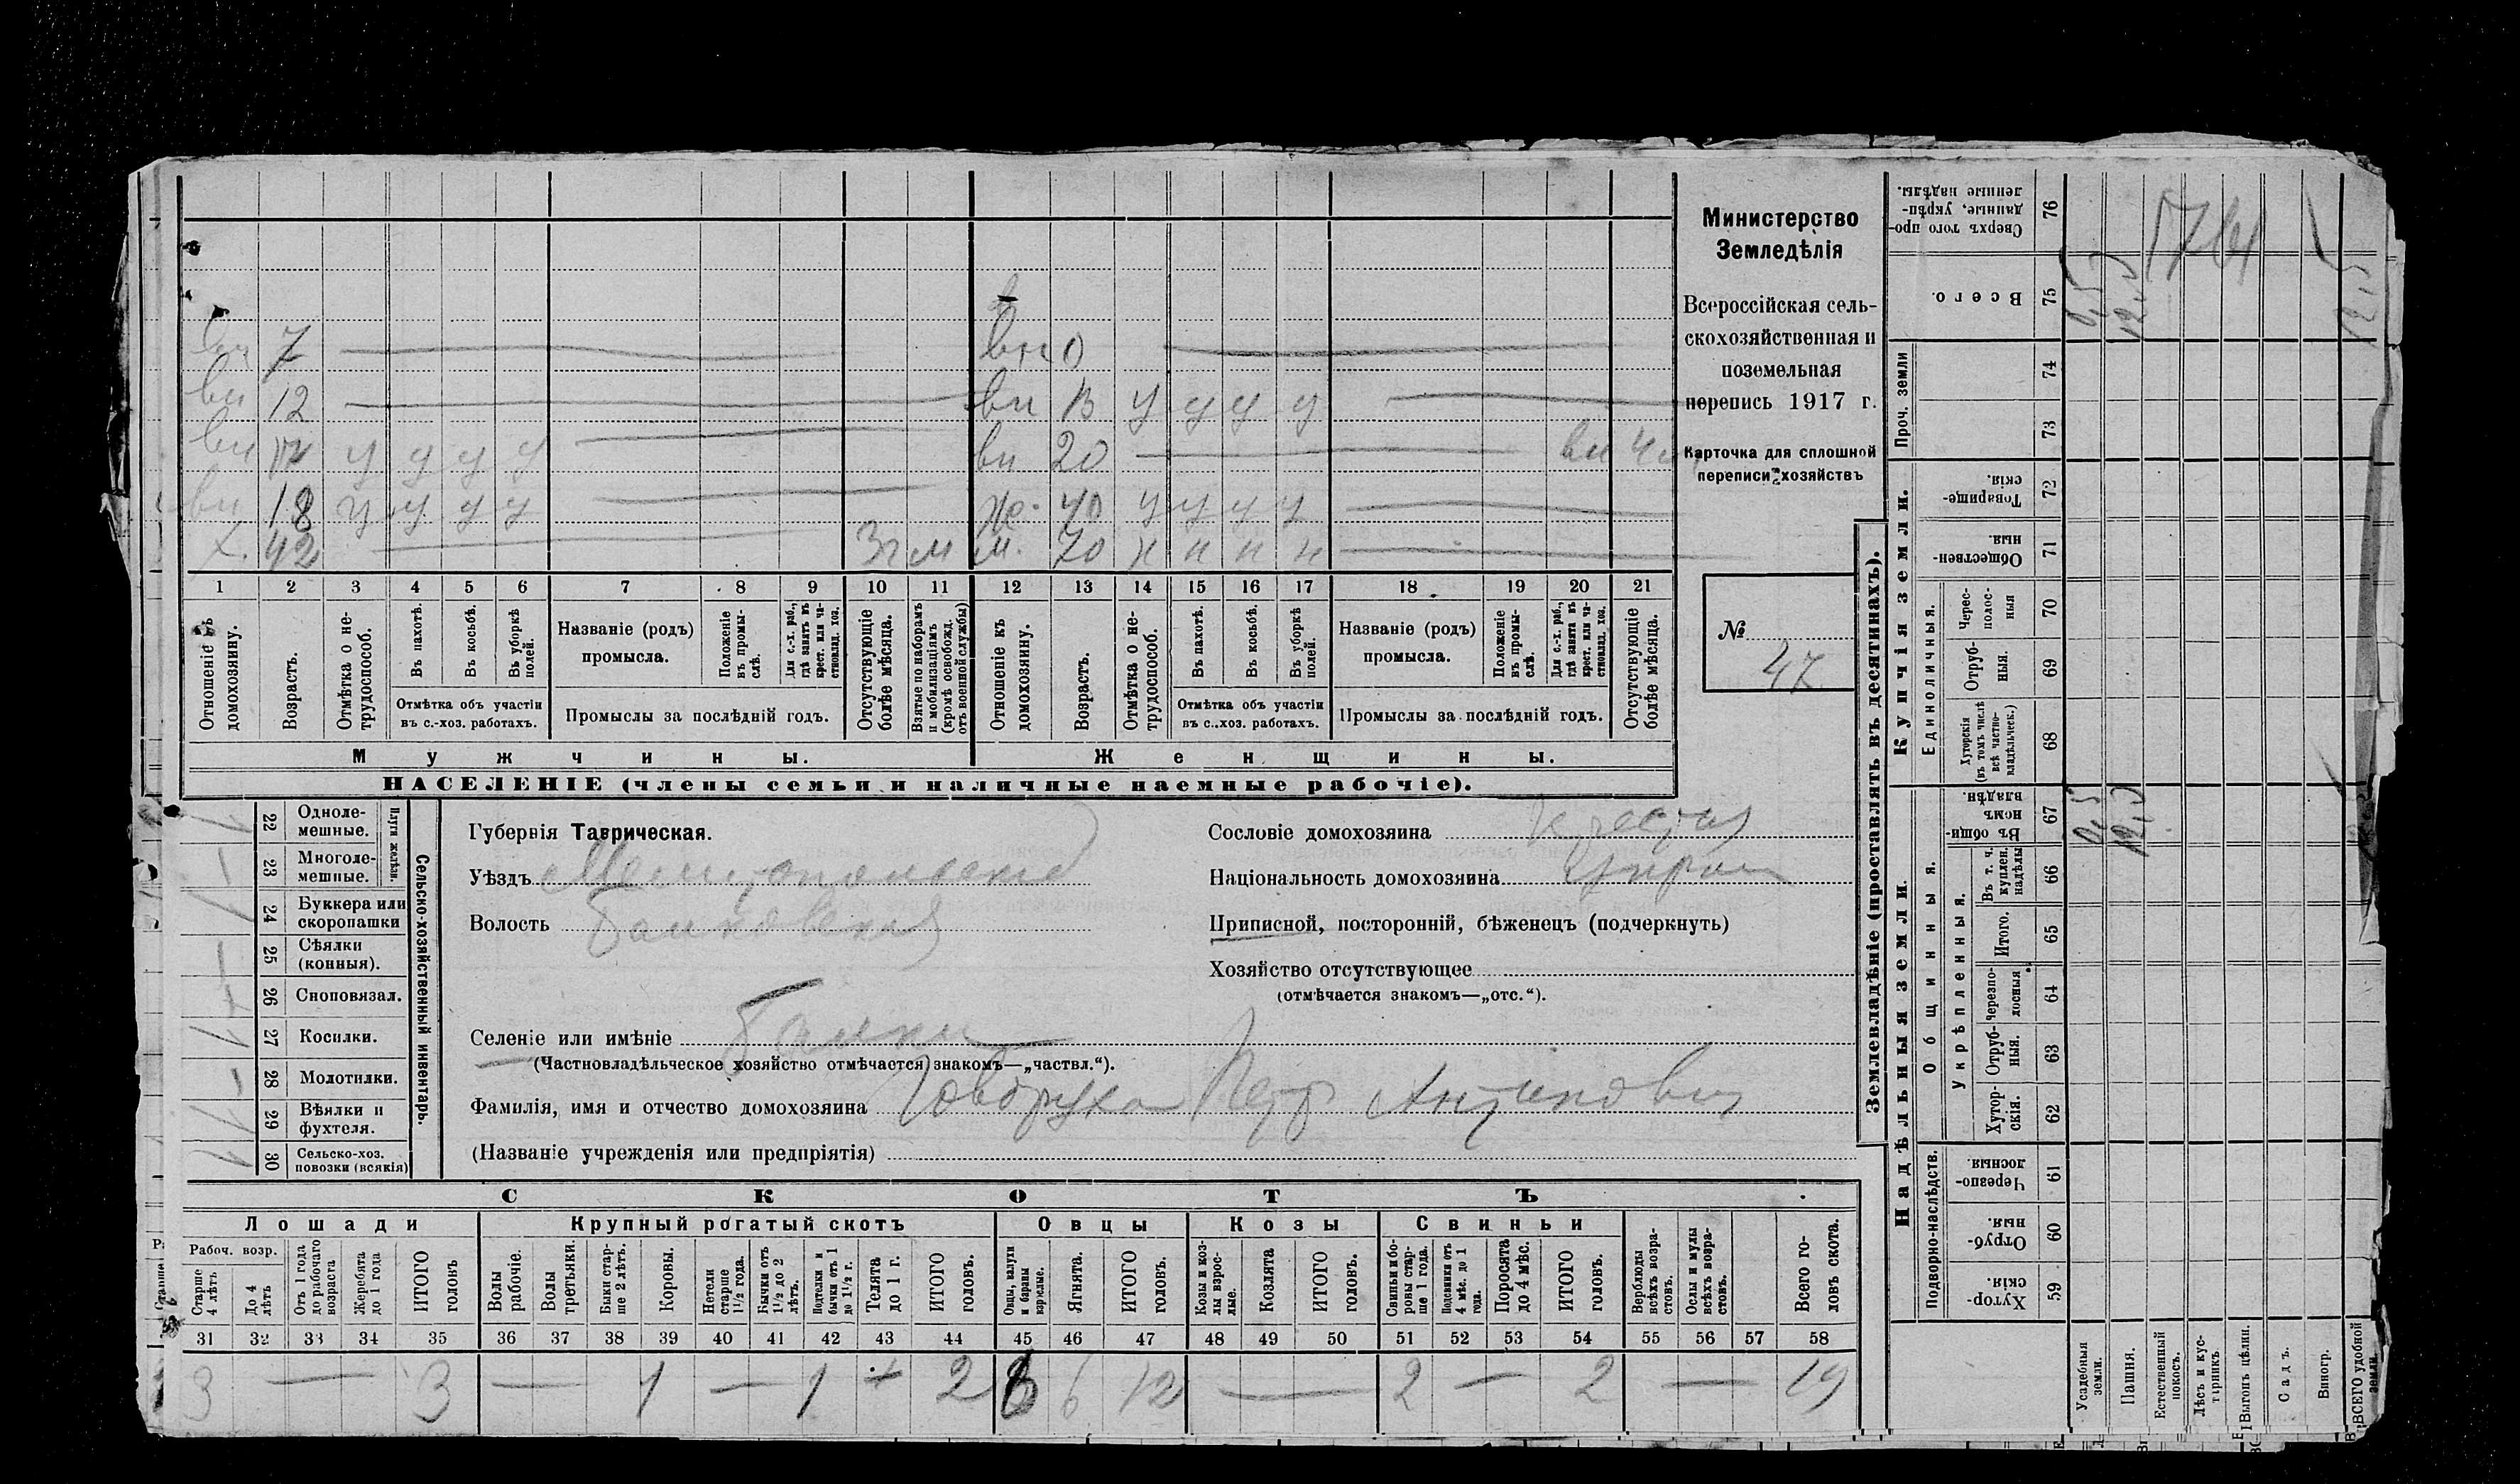 Министерство
Земледѣлія
Всероссійская сель-
скохозяйственная и
поземельная
перепись 1917 г.
Карточка для сплошной
переписи хозяйствъ
№
47
7
вн 0
вн 12
вн 13 у у у у
вн 17 у у у у
вн 20 вн
вн 18 у у у у
ж. 40 у у у у
х. 42 3 г м
м. 70 н н н н
1 2 3 4 5 6 7 8 9 10 11 12 13 14 15 16 17 18 19 20 21
Отношеніе къ домохозяину.
Возрастъ.
Отмѣтка о не-трудоспособ.
Въ пахотѣ.
Въ косьбѣ.
Въ уборкѣ полей.
Отмѣтка объ участіи
въ с.-хоз. работахъ.
Названіе (родъ)
промысла.
Положеніе въ промы-слѣ.
Для с.-х. раб., гдѣ занятъ въ крест. или ча-стновлад. хоз.
Промыслы за послѣдній годъ.
Отсутствующіе болѣе мѣсяца.
Взятые по наборамъ и мобилизаціямъ (кромѣ освобожд. отъ военной службы)
Отношеніе къ домохозяину.
Возрастъ.
Отмѣтка о не-трудоспособ.
Въ пахотѣ.
Въ косьбѣ.
Въ уборкѣ полей.
Отмѣтка объ участіи
въ с.-хоз. работахъ.
Названіе (родъ)
промысла.
Положеніе въ промы-слѣ.
Для с.-х. раб., гдѣ занята въ крест. или ча-стновлад. хоз.
Промыслы за послѣдній годъ.
Отсутствующіе болѣе мѣсяца.
Мужчины.
Женщины.
НАСЕЛЕНІЕ (члены семьи и наличные наемные рабочіе).
22 Одноле-мешные.
23 Многоле-мешные.
Плуги желѣзн.
24 Буккера или скоропашки
25 Сѣялки (конныя).
26 Сноповязал.
27 Косилки.
28 Молотилки.
29 Вѣялки и фухтеля.
30 Сельско-хоз. повозки (всякія)
Сельско-хозяйственный инвентарь.
Губернія Таврическая.
Уѣздъ Мелитопольскій
Волость Балковская
Селеніе или имѣніе Балки
(Частновладѣльческое хозяйство отмѣчается знакомъ—„частвл.“).
Фамилія, имя и отчество домохозяина Говоруха Петр Антипович
(Названіе учрежденія или предпріятія)
Сословіе домохозяина крестян
Національность домохозяина Украин
Приписной, посторонній, бѣженецъ (подчеркнуть)
Хозяйство отсутствующее
(отмѣчается знакомъ—„отс.“).
СКОТЪ
Лошади
Крупный рогатый скотъ
Овцы
Козы
Свиньи
Рабоч. возр.
Старше 4 лѣтъ
До 4 лѣтъ
Отъ 1 года до рабочаго возраста
Жеребята до 1 года
ИТОГО головъ
Волы рабочіе.
Волы третьяки.
Быки стар-ше 2 лѣтъ.
Коровы.
Нетели старше 1½ года.
Бычки отъ 1½ до 2 лѣтъ.
Подтелки и бычки отъ 1 до 1½ г.
Телята до 1 г.
ИТОГО головъ.
Овцы, валухи и бараны взрослые.
Ягнята.
ИТОГО головъ.
Козы и коз-лы взрос-лые.
Козлята
ИТОГО головъ.
Свиньи и бо-ровы стар-ше 1 года.
Подсвинки отъ 4 мѣс. до 1 года.
Поросята до 4 мѣс.
ИТОГО головъ.
Верблюды всѣхъ возра-стовъ.
Ослы и мулы всѣхъ возра-стовъ.
Всего го-ловъ скота.
31 32 33 34 35 36 37 38 39 40 41 42 43 44 45 46 47 48 49 50 51 52 53 54 55 56 57 58
3 — 3 — 1 — 1 2 6 6 12 — 2 — 2 — 19
Землевладѣніе (проставлять въ десятинахъ).
Надѣльныя земли.
Купчія земли.
Проч. земли
Подворно-наслѣдств.
Общинныя.
Укрѣпленныя.
Единоличныя.
59 Хутор-скія.
60 Отруб-ныя.
61 Черезпо-лосныя.
62 Хутор-скія.
63 Отруб-ныя.
64 черезпо-лосныя
65 Итого.
66 Въ т. ч. куплен. надѣлы
67 Въ общин-номъ владѣн.
68 Хуторскія (въ томъ числѣ всѣ частно-владѣльческ.)
69 Отруб-ныя.
70 Черес-полос-ныя
71 Обществен-ныя.
72 Товарище-скія.
73
74
75 Всего.
76 Сверхъ того про-данные, укрѣп-ленные надѣлы.
Усадебныя земли.
Пашня.
Естественный покосъ.
Лѣсъ и кус-тарникъ
Выгонъ цѣлин.
Садъ.
Виногр.
ВСЕГО удобной земли.
0,5
12,0
0,5
12,0
12,5
1764